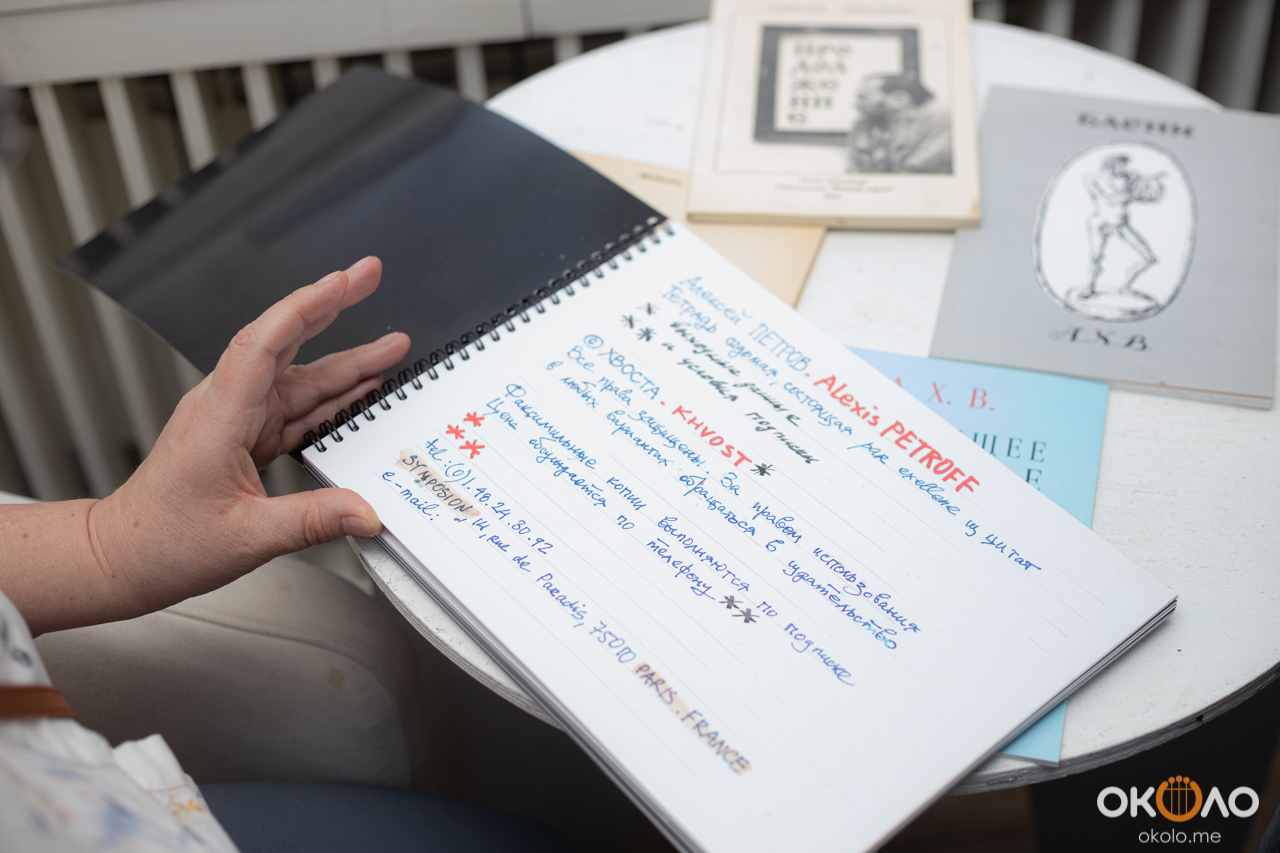 ПРО
ДОЛ
ЖЕ
НИЕ
БАСНИ
А.Х.В.
А. Х. В.
Алексей ПЕТРОВ - Alexis PETROFF
Тетрадь ведомая, состоящая par exellene из цитат
* выходные данные
** и условия подписки
© ХВОСТА - KHVOST *
Все права защищены. За правом использования
в любых вариантах обращаться в издательство
Факсимильные копии выполняются по подписке
Цена обсуждается по телефону **
tel: (0)1.48.24.30.92
"SYMPOSION" 14, rue de Paradis, 75010 PARIS. FRANCE
e-mail:
ОКОЛО
okolo.me